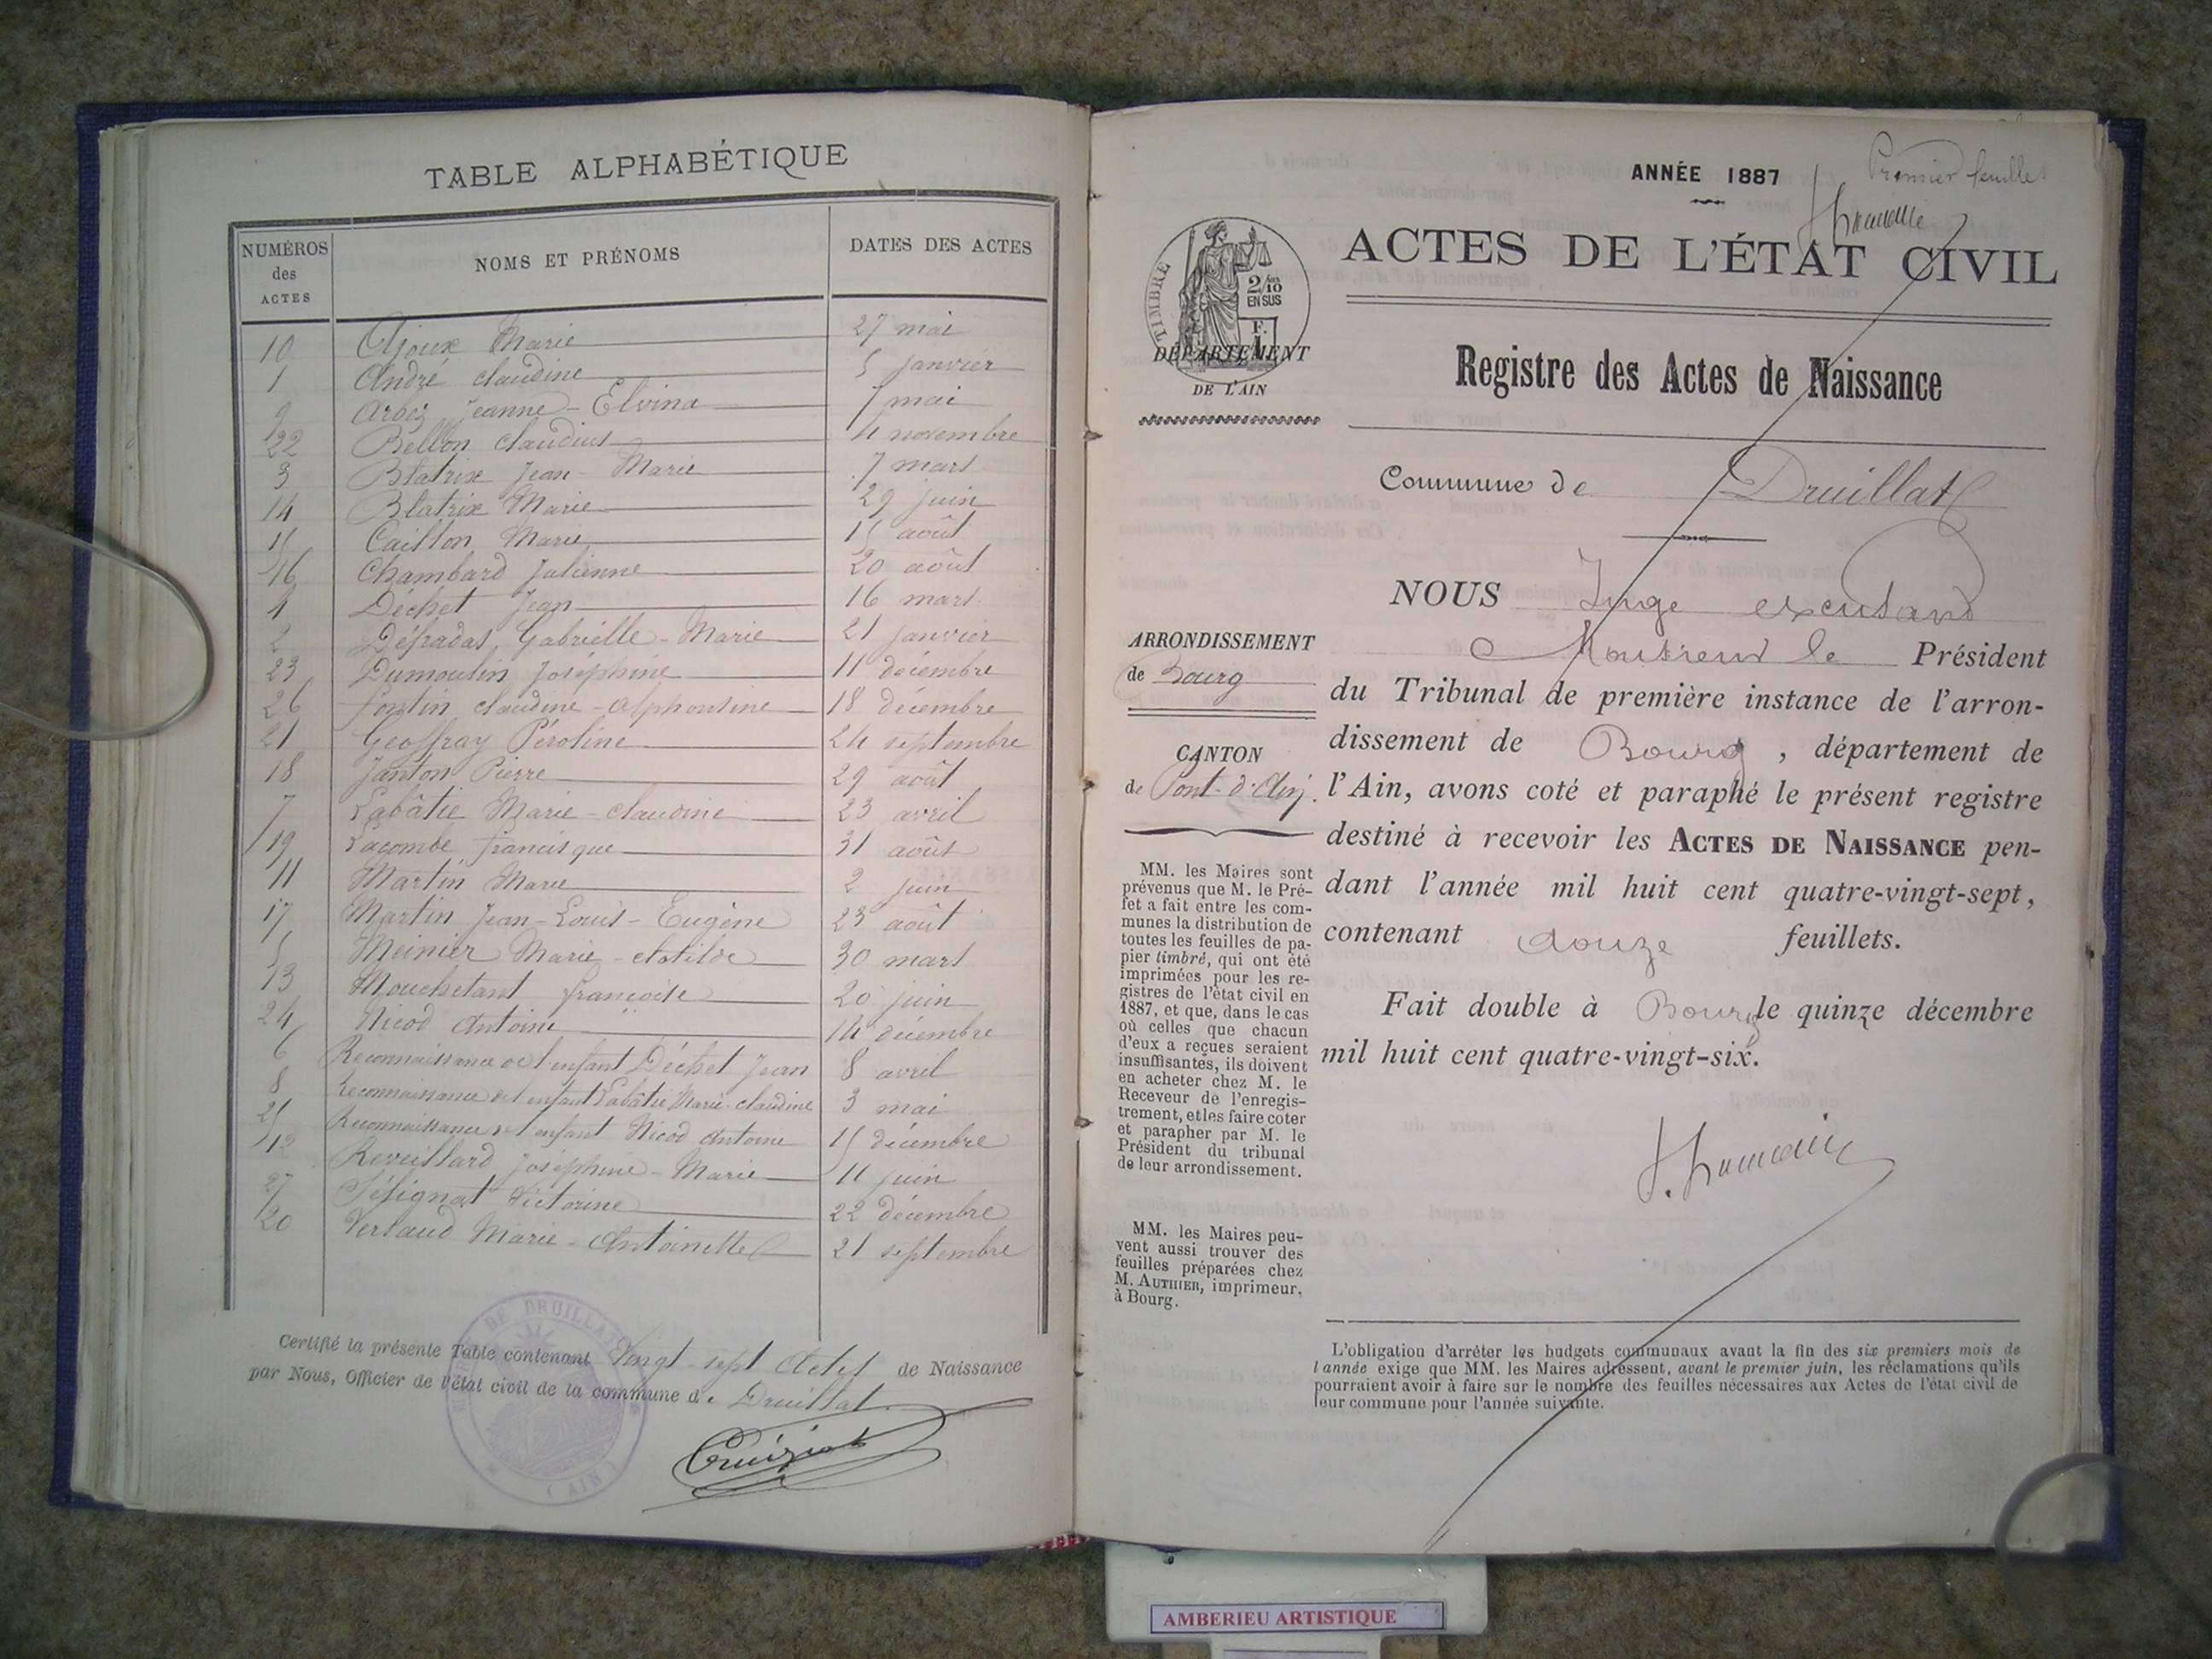 TABLE ALPHABÉTIQUE
NUMÉROS des ACTES
NOMS ET PRÉNOMS
DATES DES ACTES
10 Ajoux Marie 27 mai
1 André Claudine 5 janvier
9 Arbez Jeanne-Elvina 7 mai
22 Bellon Claudius 4 novembre
3 Blatrix Jean-Marie 7 mars
14 Blatrix Marie 29 juin
15 Caillon Marie 15 août
16 Chambard Julienne 20 août
4 Déchet Jean 16 mars
2 Défradas Gabrielle-Marie 21 janvier
23 Dumoulin Joséphine 11 décembre
26 Fontin Claudine-Alphonsine 18 décembre
21 Geoffray Péroline 24 septembre
18 Janton Pierre 29 août
7 Labâtie Marie-Claudine 23 avril
19 Lacombe Francisque 31 août
11 Martin Marie 2 juin
17 Martin Jean-Louis-Eugène 23 août
5 Meinier Marie-Clotilde 30 mars
13 Mouchetant Françoise 20 juin
24 Nicod Antoine 14 décembre
6 Reconnaissance de l'enfant Déchet Jean 8 avril
8 Reconnaissance de l'enfant Labâtie Marie-Claudine 3 mai
25 Reconnaissance de l'enfant Nicod Antoine 15 décembre
12 Reveillard Joséphine-Marie 11 juin
27 Sésignat Victorine 22 décembre
20 Verlaud Marie-Antoinette 21 septembre
Certifié la présente Table contenant Vingt-sept Actes de Naissance
par Nous, Officier de l'état civil de la commune de Druillat.
DE DRUILLAT
(AIN)
Cruiziat
ANNÉE 1887
Premier feuillet
ACTES DE L'ÉTAT CIVIL
TIMBRE
2/10
EN SUS
F.
1
DÉPARTEMENT
DE L'AIN
Registre des Actes de Naissance
Commune de Druillat
ARRONDISSEMENT
de Bourg
CANTON
de Pont-d'Ain.
MM. les Maires sont
prévenus que M. le Pré-
fet a fait entre les com-
munes la distribution de
toutes les feuilles de pa-
pier timbré, qui ont été
imprimées pour les re-
gistres de l'état civil en
1887, et que, dans le cas
où celles que chacun
d'eux a reçues seraient
insuffisantes, ils doivent
en acheter chez M. le
Receveur de l'enregis-
trement, et les faire coter
et parapher par M. le
Président du tribunal
de leur arrondissement.
MM. les Maires peu-
vent aussi trouver des
feuilles préparées chez
M. AUTHIER, imprimeur,
à Bourg.
NOUS Juge excusant
Monsieur le Président
du Tribunal de première instance de l'arron-
dissement de Bourg, département de
l'Ain, avons coté et paraphé le présent registre
destiné à recevoir les ACTES DE NAISSANCE pen-
dant l'année mil huit cent quatre-vingt-sept,
contenant douze feuillets.
Fait double à Bourg le quinze décembre
mil huit cent quatre-vingt-six.
L'obligation d'arrêter les budgets communaux avant la fin des six premiers mois de
l'année exige que MM. les Maires adressent, avant le premier juin, les réclamations qu'ils
pourraient avoir à faire sur le nombre des feuilles nécessaires aux Actes de l'état civil de
leur commune pour l'année suivante.
AMBERIEU ARTISTIQUE